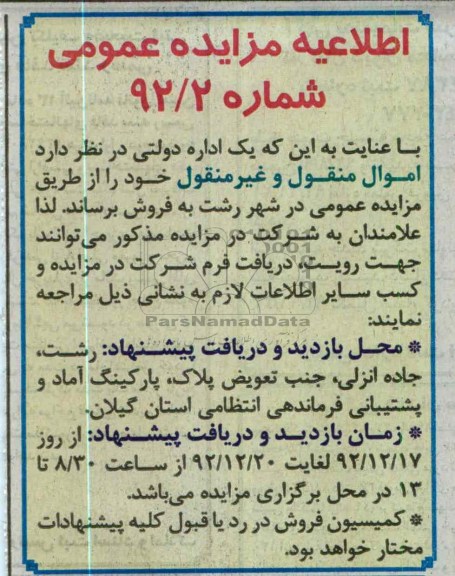 اطلاعیه مزایده عمومی
شماره ۹۲/۲
با عنایت به این که یک اداره دولتی در نظر دارد
اموال منقول و غیرمنقول خود را از طریق
مزایده عمومی در شهر رشت به فروش برساند. لذا
علامندان به شرکت در مزایده مذکور می‌توانند
جهت رویت، دریافت فرم شرکت در مزایده و
کسب سایر اطلاعات لازم به نشانی ذیل مراجعه
ParsNamadData
نمایند:
* محل بازدید و دریافت پیشنهاد: رشت،
جاده انزلی، جنب تعویض پلاک، پارکینگ آماد و
پشتیبانی فرماندهی انتظامی استان گیلان.
* زمان بازدید و دریافت پیشنهاد: از روز
۹۲/۱۲/۱۷ لغایت ۹۲/۱۲/۲۰ از ساعت ۸/۳۰ تا
۱۳ در محل برگزاری مزایده می‌باشد.
* کمیسیون فروش در رد یا قبول کلیه پیشنهادات
مختار خواهد بود.